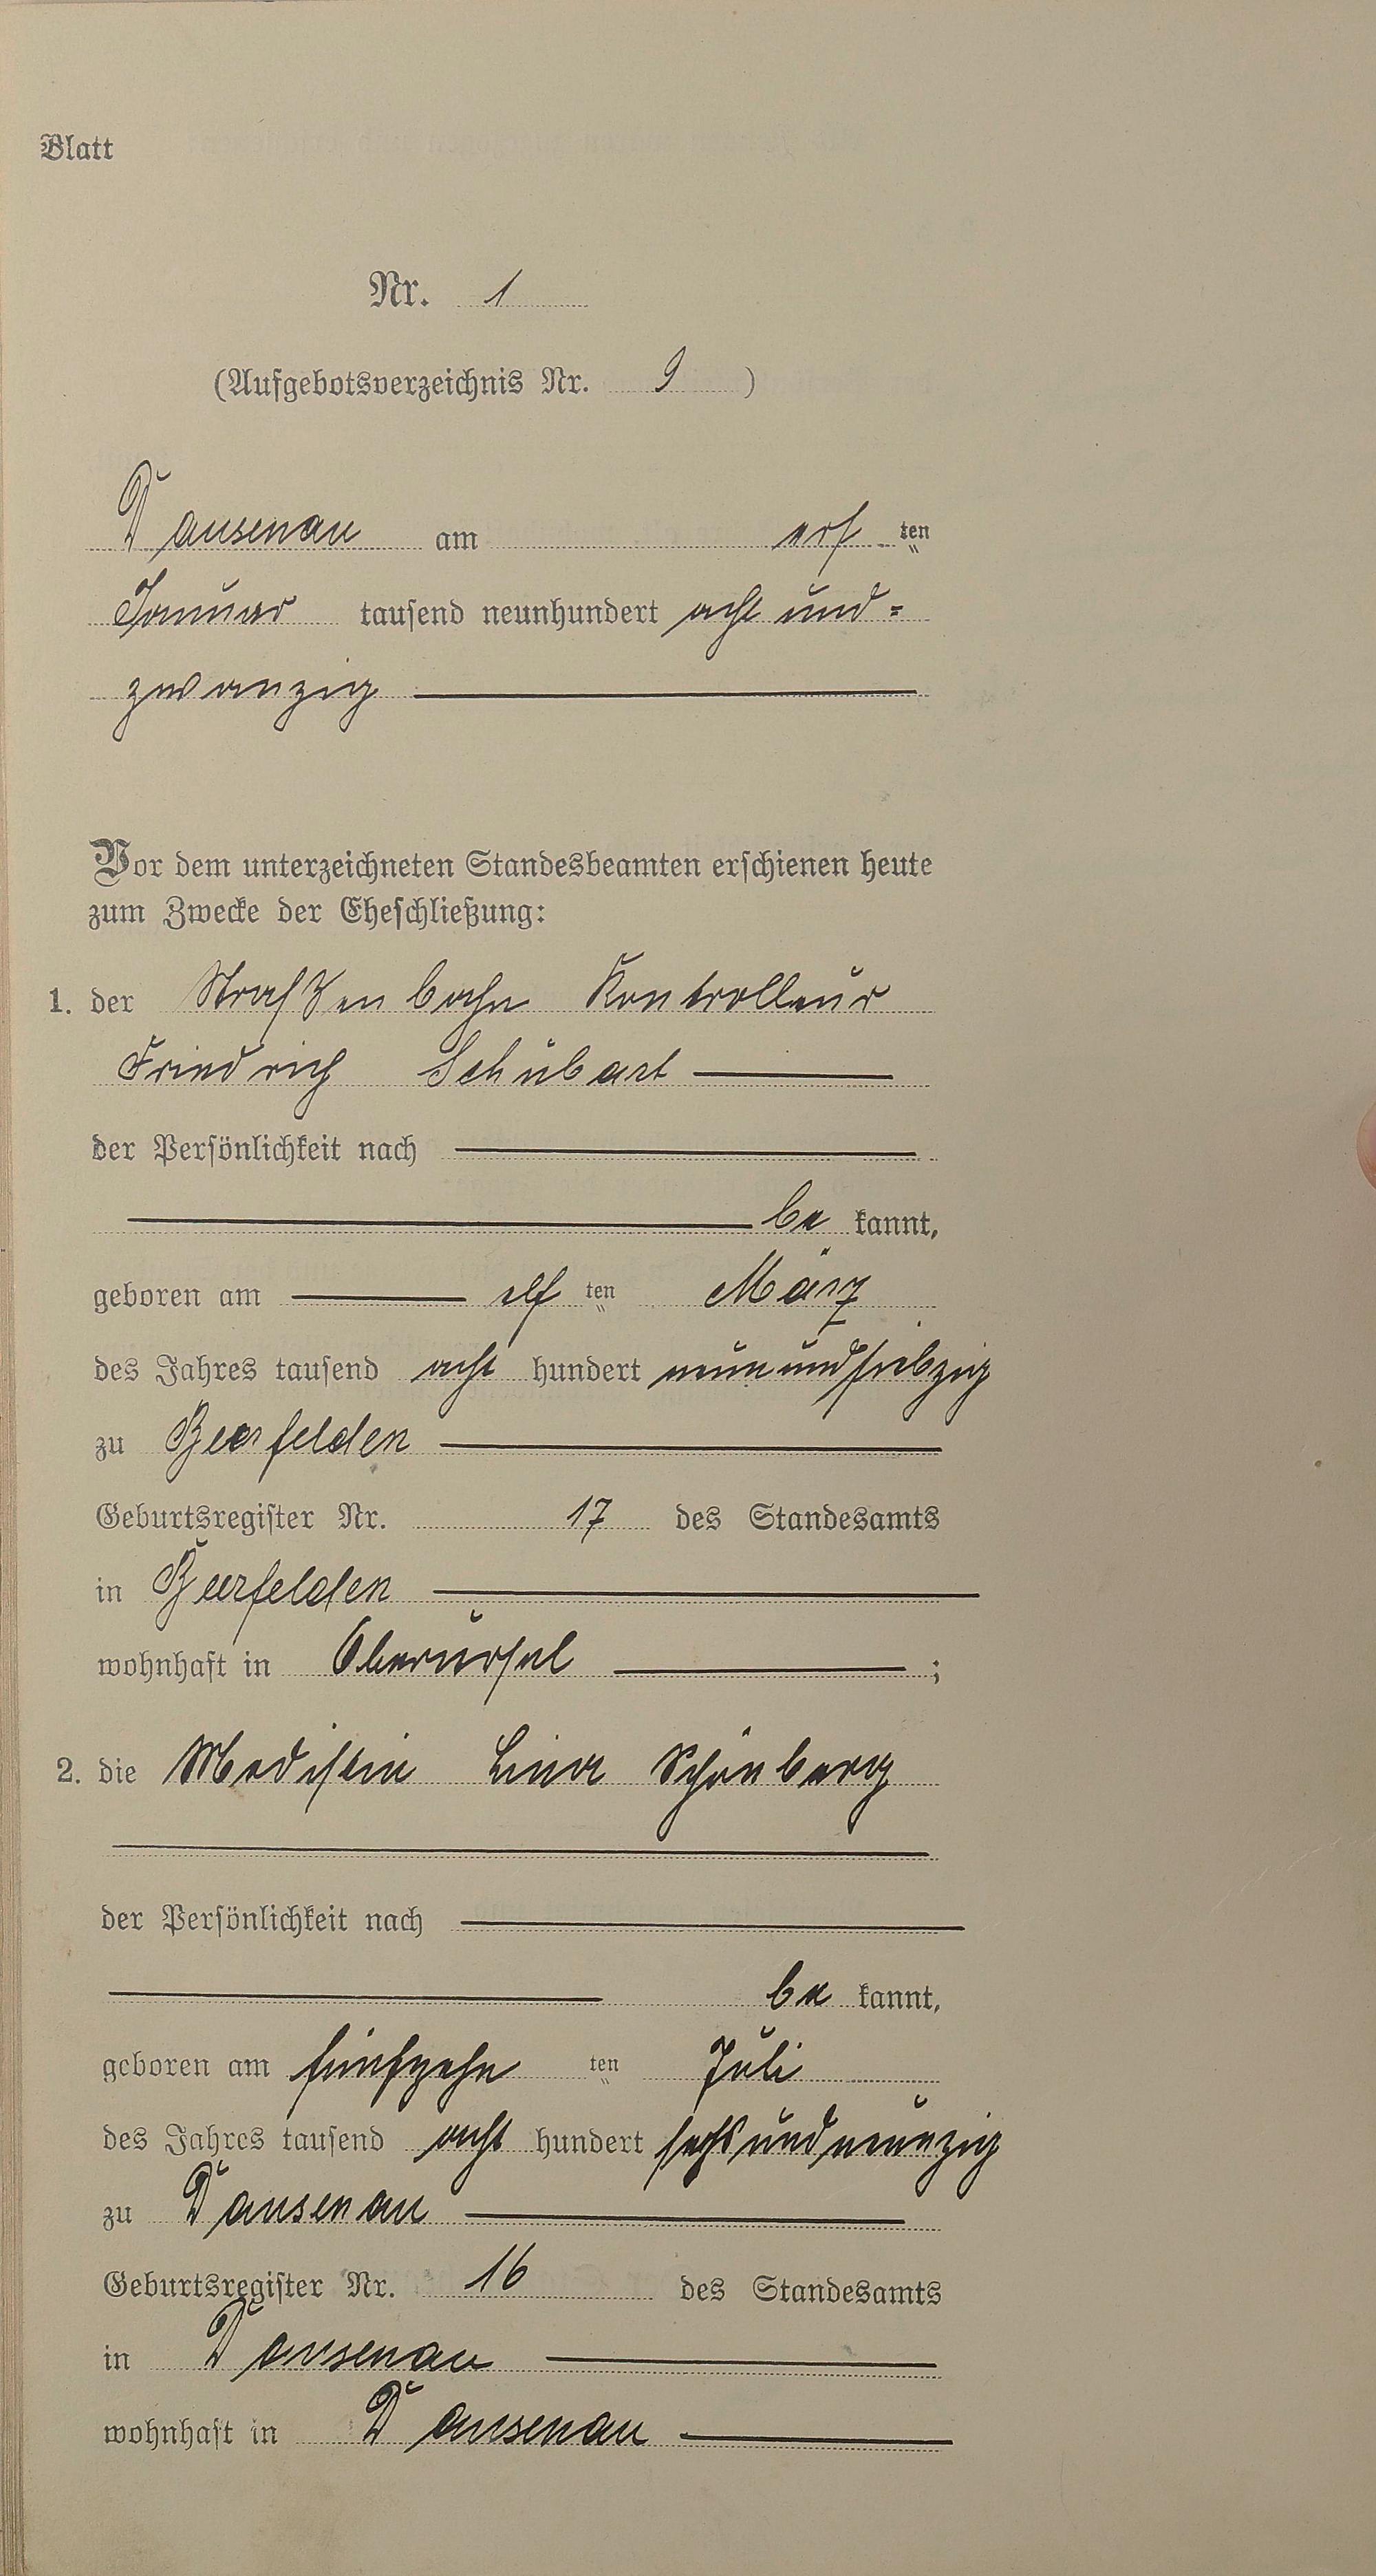 Blatt
Nr. 1
(Aufgebotsverzeichnis Nr. 9 )
Dausenau am ers ten
Januar tausend neunhundert acht und=
zwanzig
Vor dem unterzeichneten Standesbeamten erschienen heute
zum Zwecke der Eheschließung:
1. der Straßenbahn Kontrolleur
Friedrich Schubart
der Persönlichkeit nach
be kannt,
geboren am elf ten März
des Jahres tausend acht hundert neunundsiebzig
zu Beerfelden
Geburtsregister Nr. 17 des Standesamts
in Beerfelden
wohnhaft in Oberursel ;
2. die Modistin Lina Schönberg
der Persönlichkeit nach
be kannt,
geboren am fünfzehn ten Juli
des Jahres tausend acht hundert sechsundneunzig
zu Dausenau
Geburtsregister Nr. 16 des Standesamts
in Dausenau
wohnhaft in Dausenau